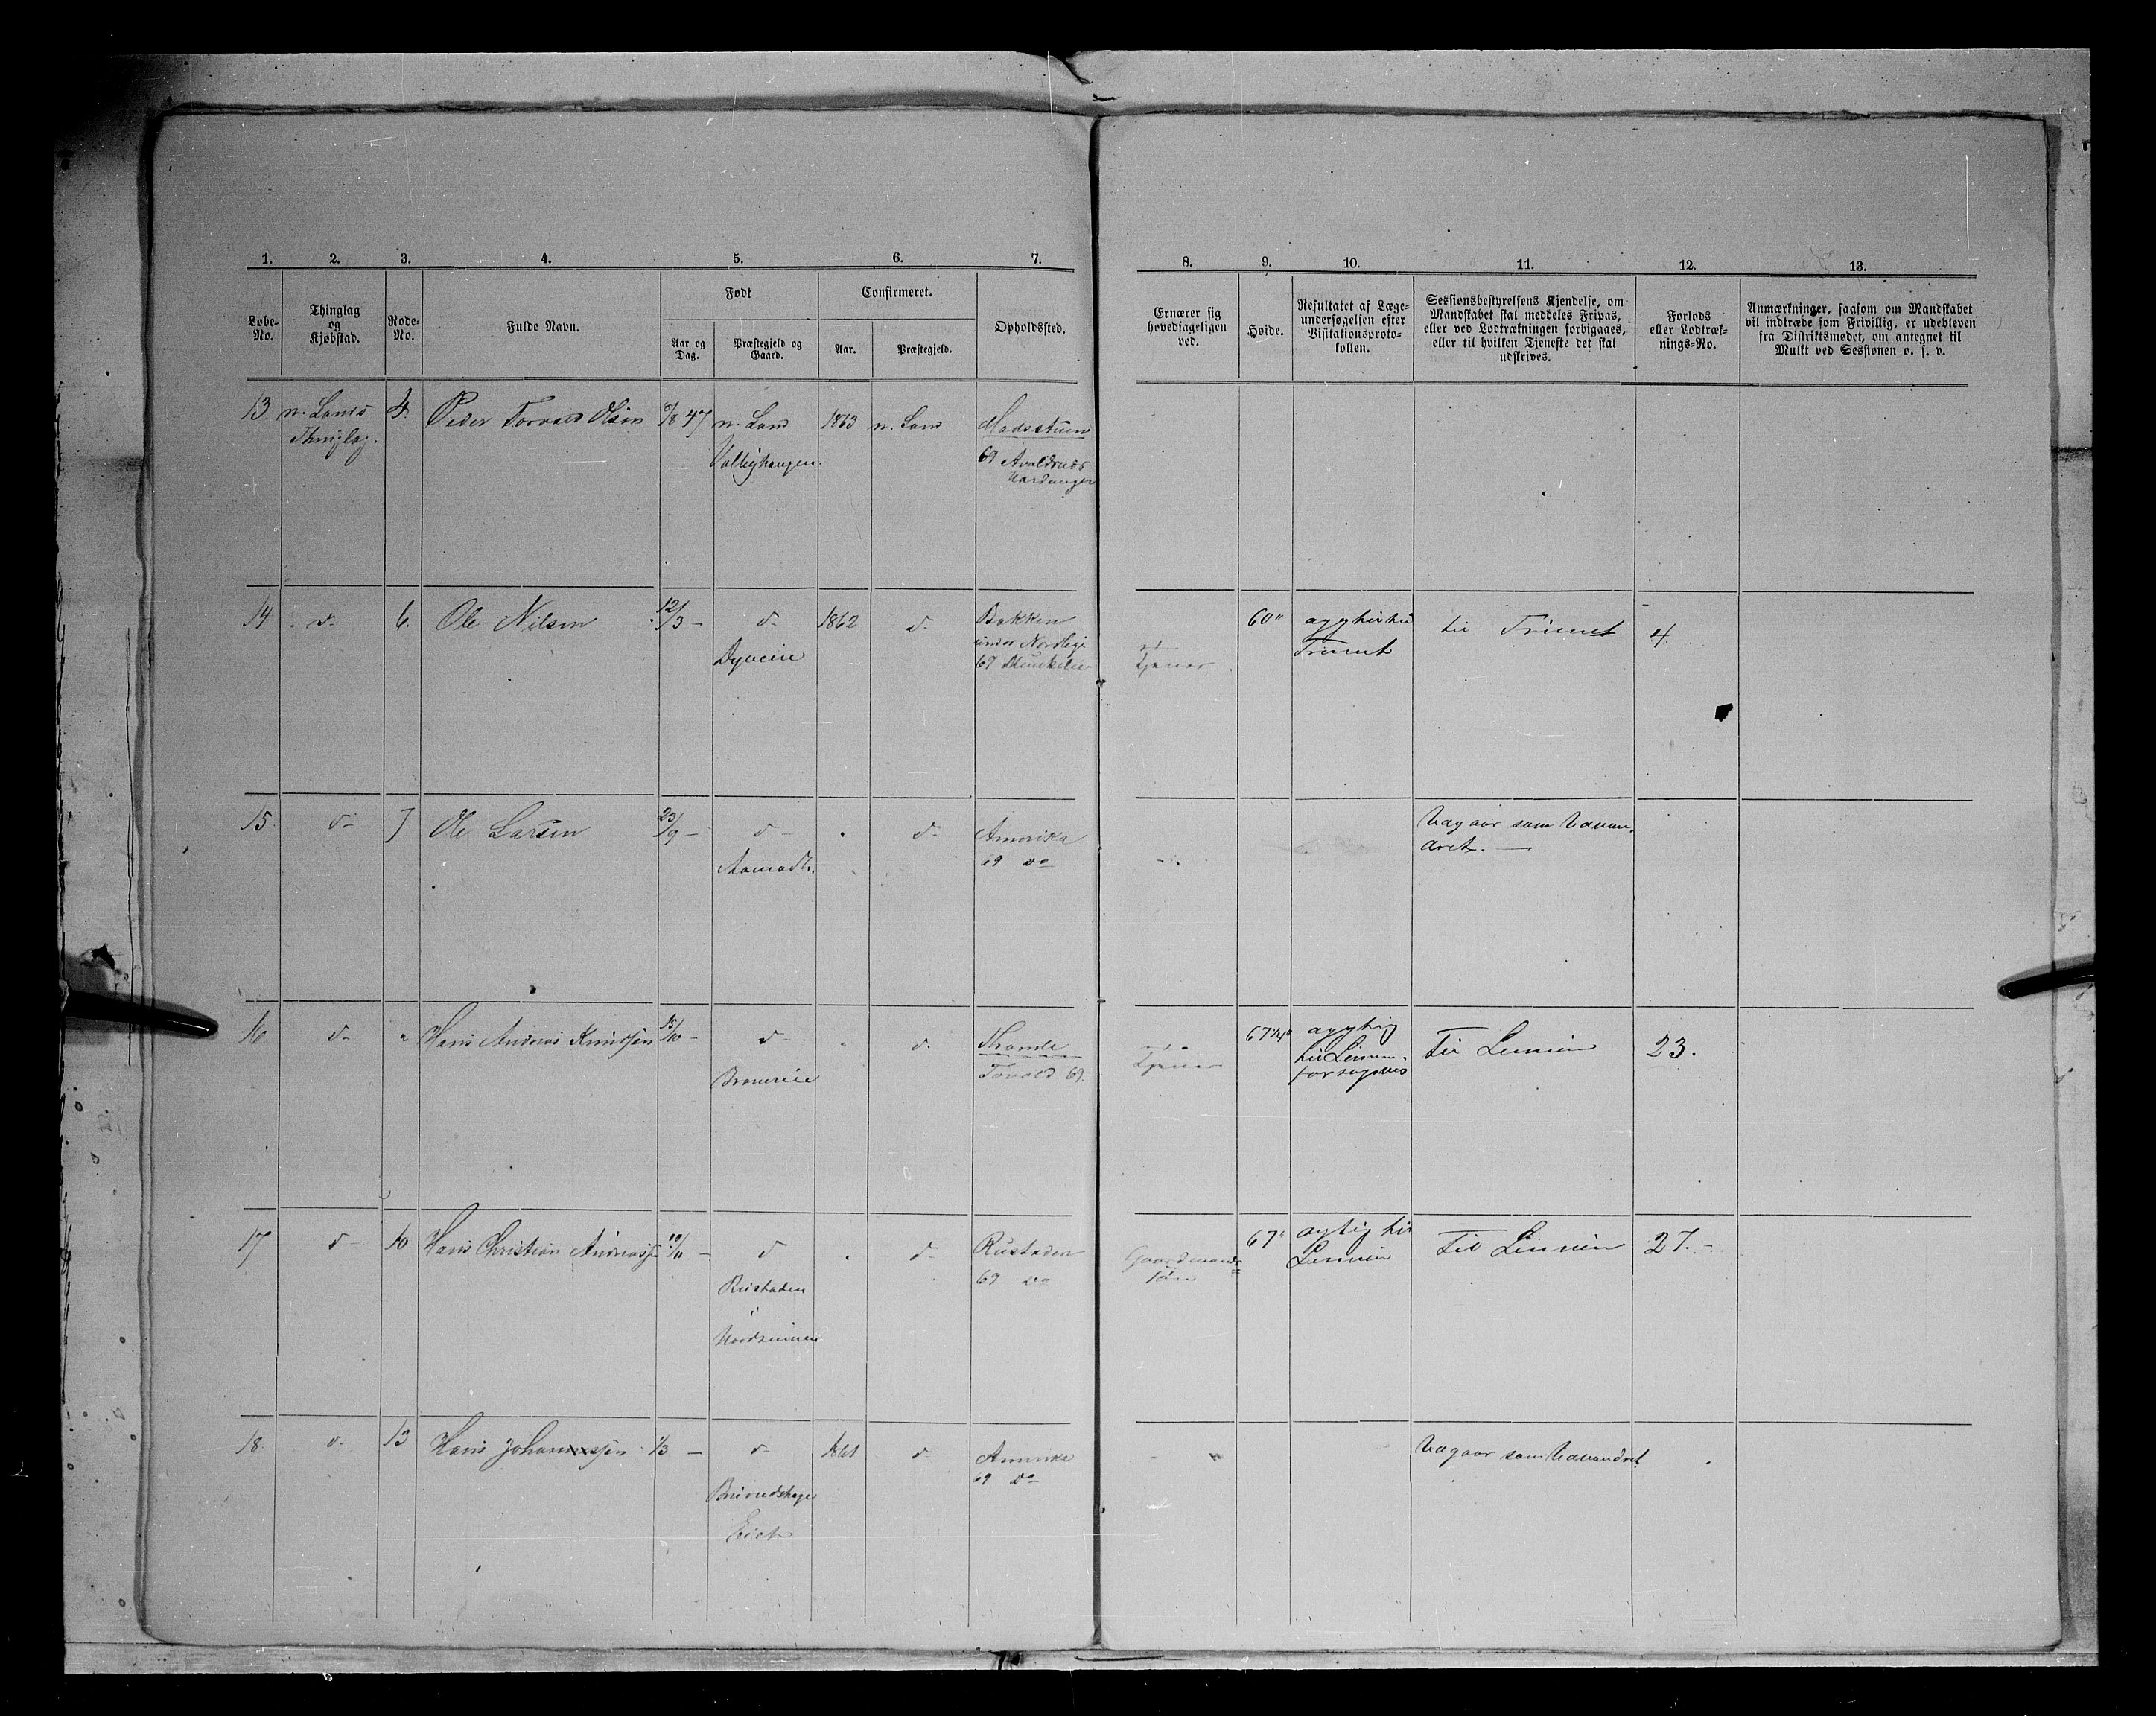 1. 2. 3. 4. 5. 6. 7.
Løbe-No.
Thinglag og Kjøbstad.
Rode-No.
Fulde Navn.
Født
Aar og Dag.
Præstegjeld og Gaard.
Confirmeret.
Aar.
Præstegjeld.
Opholdssted.
8. 9. 10. 11. 12. 13.
Ernærer sig hovedsageligen ved.
Høide.
Resultatet af Læge-undersøgelsen efter Visitationsproto-kollen.
Sessionsbestyrelsens Kjendelse, om Mandskabet skal meddeles Fripas, eller ved Lodtrækningen forbigaaes, eller til hvilken Tjeneste det skal udskrives.
Forlods eller Lodtræk-nings-No.
Anmærkninger, saasom om Mandskabet vil indtræde som Frivillig, er udebleven fra Distriktsmødet, om antegnet til Mulkt ved Sessionen o. s. v.
13 n. Lands 4. Peder Torvald Olsen /8 47 n. Land 1863 n. Land
Thinglag.
69
14 d- 6. Ole Nilsen 12/3 - d- 1862 d- Bakken 60" til Trainet 4.
Dyveeie under Nordlige Tjener Trainet
69
15 d- 7 Ole Larsen 23/9 - d- d- Amerika Udgaar som Udvan-
69 do dret.
16 d- " Hans Andreas Knudsen 15/10 - d- " d- 67 Til Linien 23.
til Linien Tjener
69. forsøgsvis
17 d- 10 Hans Christian Andreass. 10/11 - d " d- Rustaden Gaardmands 67" til Til Linien 27.
Rustaden 69 do søn Linien
i
Nordsinnen
18 d- 13 Hans Johannessen 1/3 - d- 1861 d- Amerika Udgaar som Udvandret
69 do
Eiet